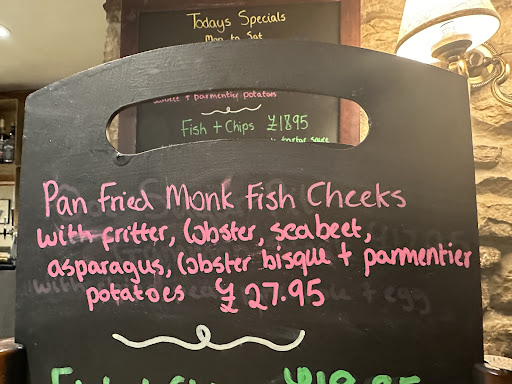 Todays Specials
Mon to Sat
seabeet + parmentier potatoes
Fish + Chips £18.95
tartar sauce
Pan Fried Monk Fish Cheeks
with fritter, lobster, seabeet,
asparagus, lobster bisque + parmentier
potatoes £27.95